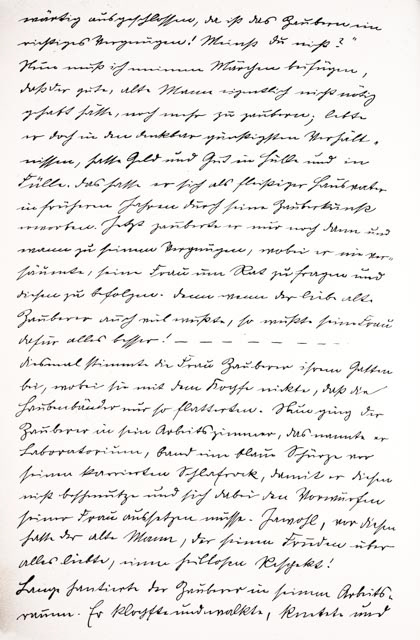 wärtig ausgeschlossen, da ist das Zaubern ein
richtiges Vergnügen! Meinst du nicht?"
Nun muß ich meinem Märchen beifügen,
daß der gute, alte Mann eigentlich nicht nötig
gehabt hätte, noch mehr zu zaubern; lebte
er doch in den denkbar günstigsten Verhält-
nissen, hatte Geld und Gut in Hülle und in
Fülle. Das hatte er sich als fleißiger Hausvater
in früheren Jahren durch seine Zauberkunst
erworben. Jetzt zauberte er nur noch dann und
wann zu seinem Vergnügen, wobei er nie ver-
säumte, seine Frau um Rat zu fragen und
diesen zu befolgen. Denn wenn der liebe alte
Zauberer auch viel wußte, so wußte seine Frau
dafür alles besser! — — — — — — —
Diesmal stimmte die Frau Zauberer ihrem Gatten
bei, wobei sie mit dem Kopfe nickte, daß die
Haubenbänder nur so flatterten. Nun ging der
Zauberer in sein Arbeitszimmer, das nannte er
Laboratorium, band eine blaue Schürze vor
seinen karrierten Schlafrock, damit er diesen
nicht beschmutze und sich dabei den Vorwürfen
seiner Frau aussetzen müsse. Jawohl, vor diesen
hatte der alte Mann, der seinen Frieden über
alles liebte, einen heillosen Respekt!
Lange hantierte der Zauberer in seinem Arbeits-
raum. Er klopfte und walkte, knetete und